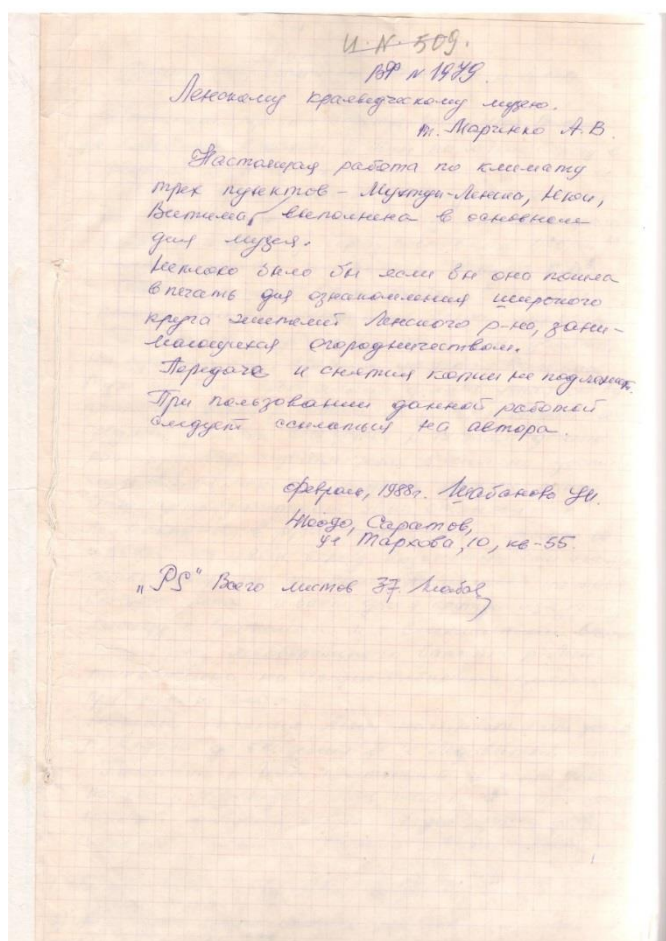 И. N. 509.
ВФ N 1979.
Ленскому краеведческому музею.
т. Марченко А.В.
Настоящая работа по климату
трех пунктов – Мухтуи-Ленска, Нюи,
Витима, выполнена в основном
для музея.
Неплохо было бы если бы она пошла
в печать для ознакомления широкого
круга жителей Ленского р-на, зани-
мающихся огородничеством.
Передача и снятия копии не подлежит.
При пользовании данной работой
следует ссылаться на автора.
февраль, 1988г. Шабанова
Саратов,
ул Тархова, 10, кв-55.
„PS" Всего листов 37. Шабан